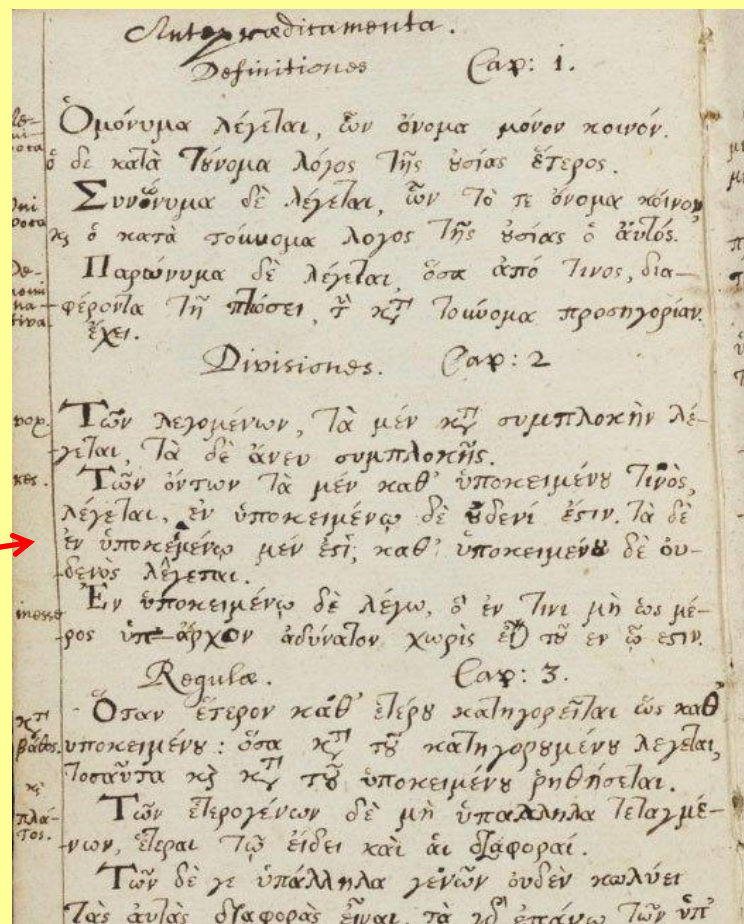 Antepraedicamenta.
Definitiones Cap: 1.
Ὁμόνυμα λέγεται, ὧν ὄνομα μόνον κοινόν.
ὁ δε κατὰ τὔνομα λόγος τῆς ȣσίας ἕτερος.
Συνώνυμα δὲ λέγεται, ὧν τὸ τε ὄνομα κόινον,
ϗ ὁ κατὰ τοὔνομα λογος τῆς ȣσίας ὁ ἀυτός.
Παρώνυμα δὲ λέγεται, ὅσα ἀπό τινος, δια-
φέροντα τῇ πτώσει, τ̀ κτ̀ τοὔνομα προσηγορίαν.
ἔχει.
Divisiones. Cap: 2
Τῶν λεγομένων, τὰ μέν κτ̀ συμπλοκὴν λέ-
γεται, τὰ δὲ ἄνευ συμπλοκῆς.
Τῶν ὄντων τὰ μέν καθ' ὑποκειμένȣ τινὸς,
λέγεται, ἐν ὑποκειμένῳ δὲ ȣδενί ἐστιν. τὰ δὲ
ἐν ὑποκειμένῳ μέν ἐστι, καθ' ὑποκειμένȣ δὲ ου-
δενὸς λέγεται.
Ἐν ὑποκειμένῳ δὲ λέγω, ὅ ἐν τινι μὴ ὡς μέ-
inesse
ρος ὑπάρχον αδύνατον χωρὶς τȣ̃ εν ᾧ εστιν.
Regulæ. Cap: 3.
Ὅταν ἕτερον κάθ' ετέρȣ κατηγορεῖται ὡς καθ'
κτ̀
βάθος.
υποκειμένȣ: ὅσα κτ̀ τȣ̃ κατηγορȣμένȣ λεγεται,
τοσαῦτα ϗ κτ̀ τȣ̃ ὑποκειμένȣ ῥηθήσεται.
ϗ
πλά-
τος.
Τῶν ετερογένων δὲ μὴ ὑπαλληλα τεταγμέ-
νων, ἕτεραι τῷ ἐίδει καὶ ἁι διάφοραί.
Τῶν δὲ γε ὑπάλληλα γενῶν ȣ̓δὲν κωλύει
τὰς ἀυτὰς διαφορὰς ἐῖναι, τὰ γὰρ ἐπάνω τῶν ὑπ'